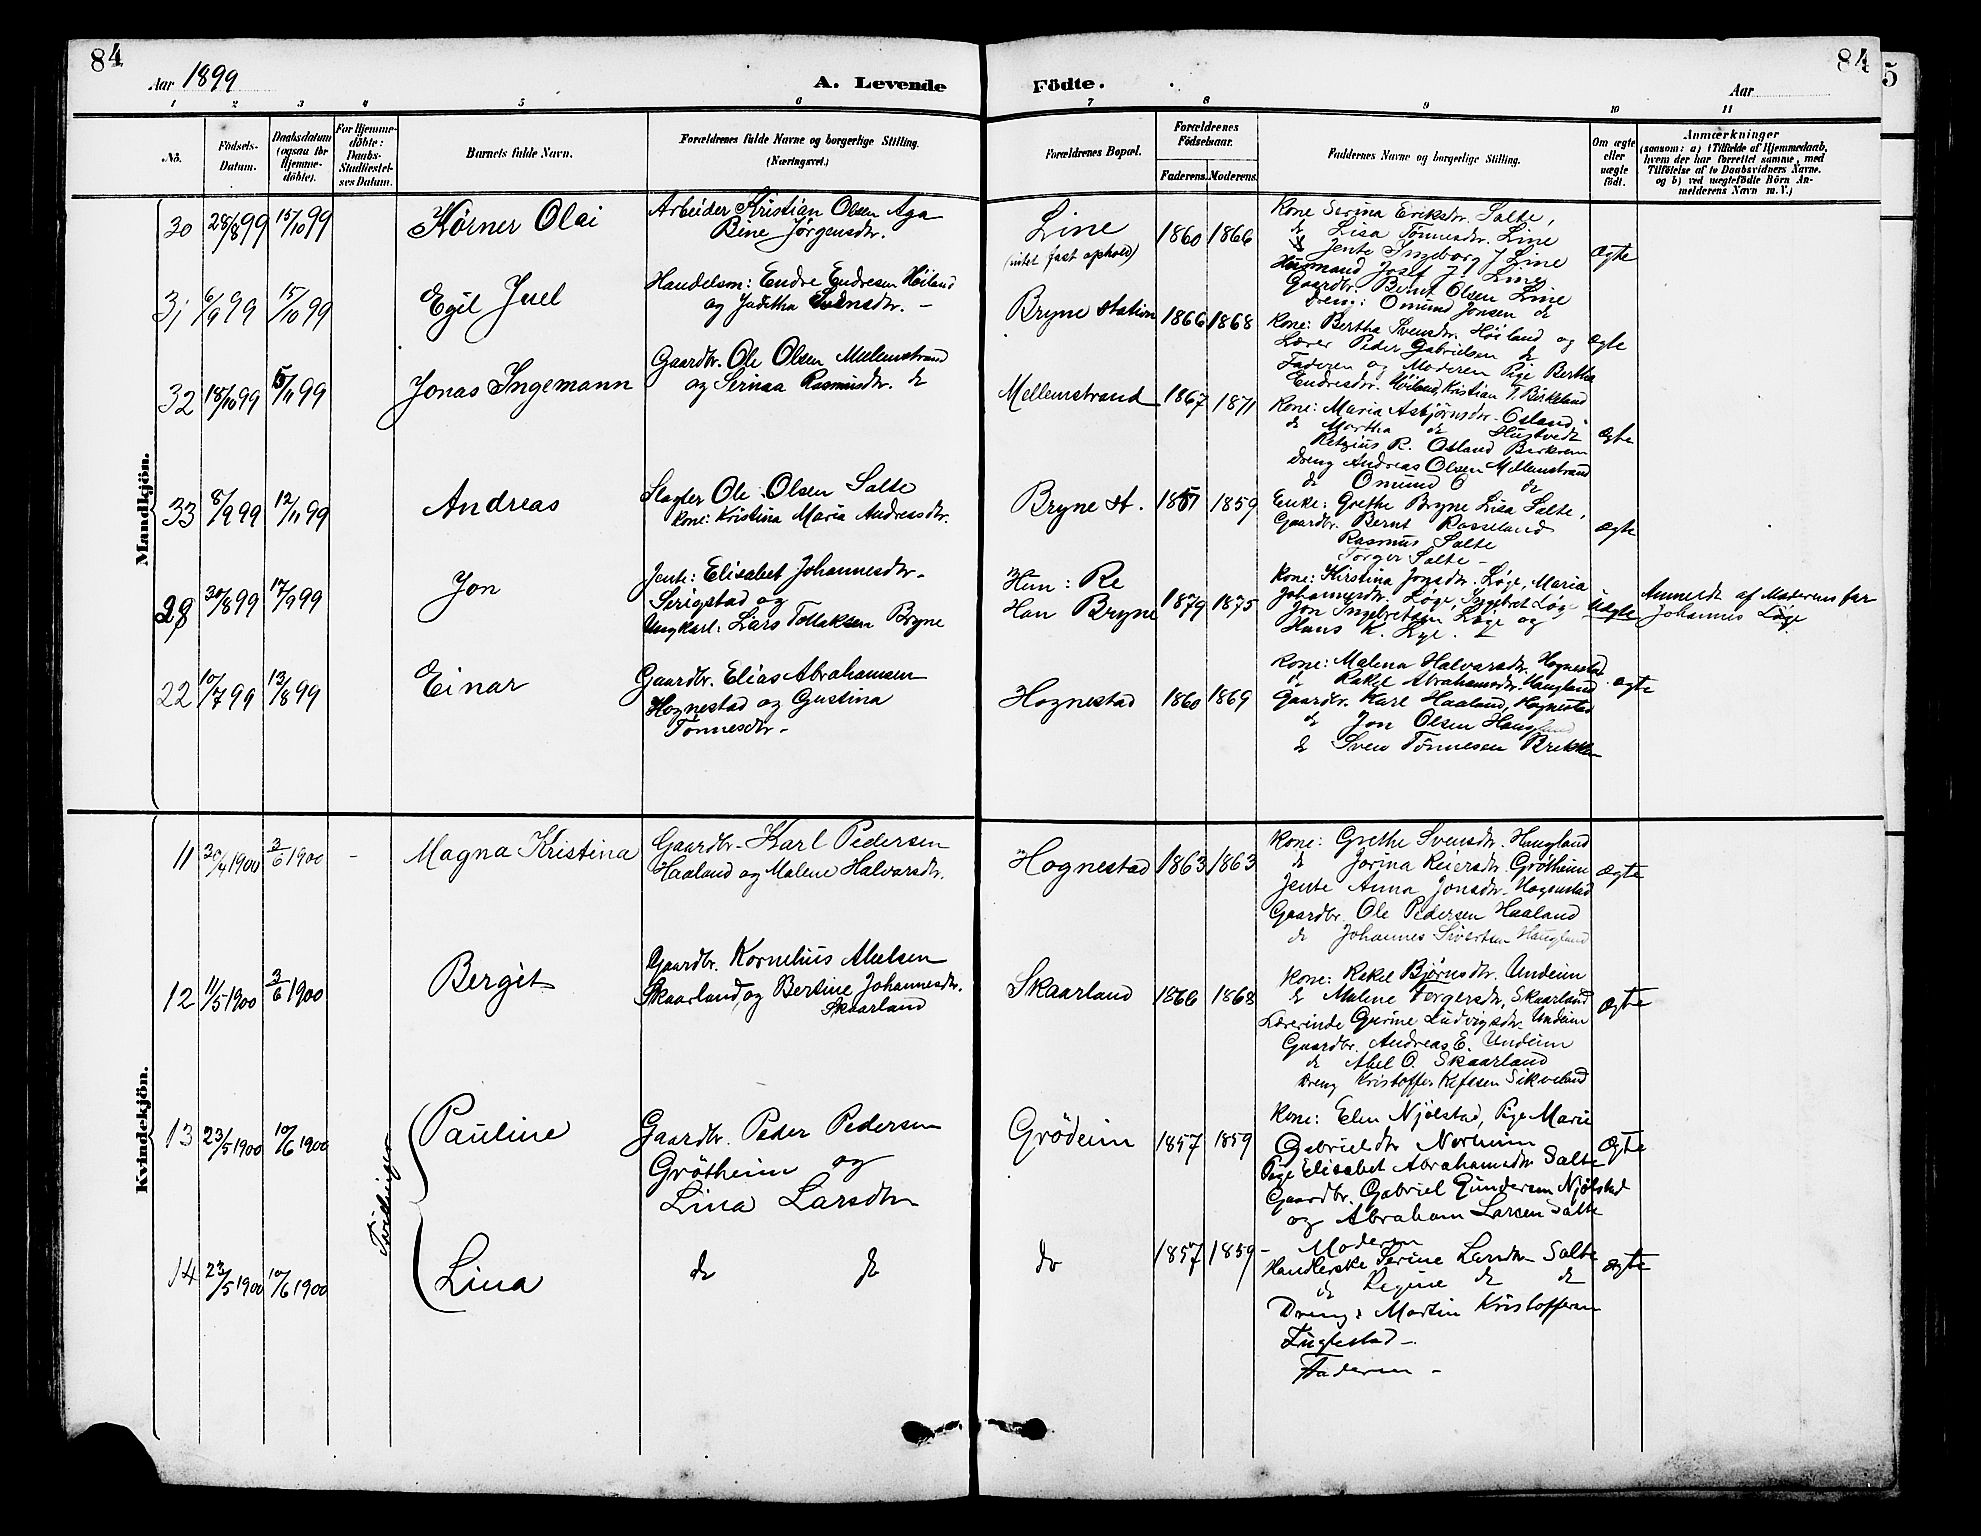 84
84
5
Aar 1899
A. Levende
Födte.
Aar
1 2 3 4 5 6 7 8 9 10 11
No.
Födsels-Datum.
Daabsdatum (ogsaa for Hjemme-döbte).
For Hjemme-döbte: Daabs-Stadfæstel-ses Datum.
Barnets fulde Navn.
Forældrenes fulde Navne og borgerlige Stilling.
(Næringsvei.)
Forældrenes Bopæl.
Forældrenes Födselsaar.
Faderens. Moderens.
Faddernes Navne og borgerlige Stilling.
Om ægte eller uægte födt.
Anmærkninger
(saasom: a) i Tilfælde af Hjemmedaab, hvem der har forrettet samme, med Tilföielse af to Daabsvidners Navne. og b) ved uægtefödte Börn An-melderens Navn m. V.)
Mandkjön.
30 28/8 99 15/10 99
Kørner Olai
Arbeider Kristian Olsen Aga
Bine Jørgensdtr.
Line
(intet fast ophold)
1860 1866
Kone Serina Eriksdtr. Salte,
do Lisa Tönnesdtr. Line
do Jente Ingeborg J Line
Husmand Josef J. Line
Gaardbr. Bernt Olsen Line
Dreng: Omund Jonsen do
Ægte
31 6/9 99 15/10 99
Egil Juel
Handelsm: Endre Endresen Høiland
og Juditha Svensdtr. –
Bryne Station
1866 1868
Kone: Bertha Svensdr. Höiland og
Lærer Peder Gabrielsen do
Faderen og Moderen Pige Bertha
Endresdtr. Høiland, Kristian T. Birkeland
Ægte
32 18/10 99 5/11 99
Jonas Ingemann
Gaardbr. Ole Olsen Mellemstrand
og Serina Rasmusdtr. do
Mellemstrand
1867 1871
Kone: Maria Asbjørnsdtr. Osland.
do Martha do Hustvedt
Retzius R. Osland Birkrem
Dreng Andreas Olsen Mellemstrand
do Omund O do
Ægte
33 8/9 99 12/11 99
Andreas
Slagter Ole Olsen Salte
Kone: Kristina Maria Andreasdtr.
Bryne St.
1859
Enke: Grethe Bryne Lisa Salte,
Gaardbr. Bernt Rosseland
Rasmus Salte
Torger Salte –
Ægte
28 30/8 99 17/9 99
Jon
Jente: Elisabet Johannesdtr.
Serigstad og
Ungkarl: Lars Tollaksen Bryne
Hun: Re
Han Bryne
1879 1875
Kone: Kirstina Jonsdtr. Løge, Maria
Johannesdtr. Løge, Ingebret Løge
Jon Ingebretsen Løge og
Hans K. Lye.
Uægte
Anmeldt af Moderens far
Johannes Løge
22 10/7 99 13/8 99
Einar
Gaardbr. Elias Abrahamsen
Hognestad og Gustina
Tønnesdtr –
Hognestad
1860 1869
Kone: Malena Halvarsdtr. Hognestad
do Rakel Abrahamsdtr. Haugland
Gaardbr. Karl Haaland, Hognestad
do Jon Olsen Haugland
do Sven Tønnesen Brekken
Ægte
Kvindekjön.
11 30/4 1900 3/6 1900 –
Magna Kristina
Gaardbr. Karl Pedersen
Haaland og Malene Halvarsdtr.
Hognestad
1863 1863
Kone: Grethe Svensdtr. Haugland
do Jorina Reiersdtr. Grötheim
Jente Anna Jonsdtr. Hognestad
Gaardbr. Ole Pedersen Haaland
do Johannes Sivertsen Haugland
Ægte
12 11/5 1900 3/6 1900
Bergit
Gaardbr. Kornelius Abelsen
Skaarland og Bertine Johannesdtr.
Skaarland
Skaarland
1866 1868
Kone: Rakel Bjørnsdtr. Undeim
do Malene Torgersdtr. Skaarland
Lærerinde Gurine Ludvigsdtr. Undeim
Gaardbr. Andreas E. Undeim
do Abel O. Skaarland
Dreng Kristoffer Sikveland
Ægte
Tvillinger
13 23/5 1900 10/6 1900
Pauline
Gaardbr. Peder Pedersen
Grötheim og
Lina Larsdtr
Grödeim
1857 1859
Kone: Elen Njølstad, Pige Marie
Gabrielsdtr Norheim
Pige Elisabet Abrahamsdtr Salte
Gaardbr. Gabriel Gundersen Njølstad
og Abraham Larsen Salte
Ægte
14 23/5 1900 10/6 1900
Lina
do do
do
1857 1859 –
Moderen
Handlerske Serine Larsdtr Salte
do Regine do do
Dreng: Martin Kristoffersen
Fuglestad –
Faderen –
Ægte